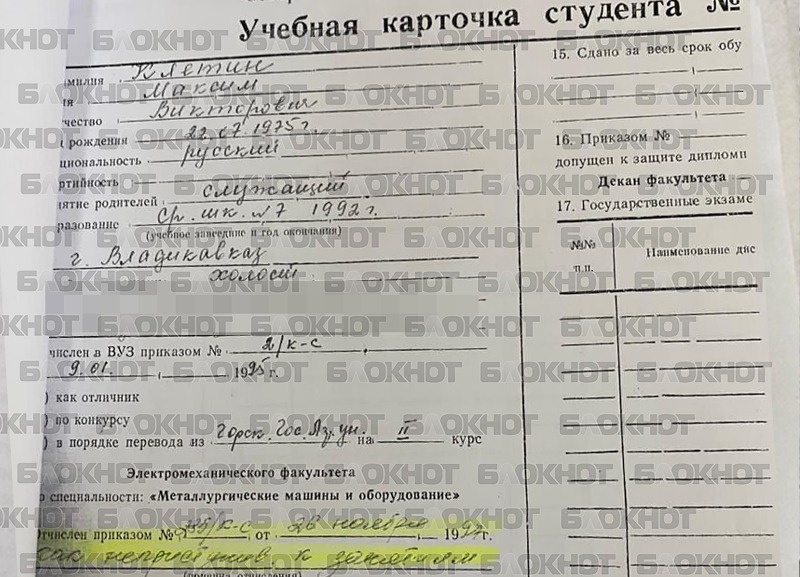 Учебная карточка студента №
милия Клетин
Максим
чество Викторович
рождения 22.07.1975г.
циональность русский
ртийность
нятие родителей служащий
разование ср. шк. №7 1992г.
(учебное заведение и год окончания)
г. Владикавказ
холост
числен в ВУЗ приказом № 2/к-с
9.01. 1995г.
) как отличник
) по конкурсу
) в порядке перевода из Горск. Гос. на II курс
Электромеханического факультета
о специальности: «Металлургические машины и оборудование»
тчислен приказом № /к-с, от 28 ноября 199 г.
как неприступив. к занятиям
(причина отчисления)
15. Сдано за весь срок обу
16. Приказом №
допущен к защите дипломн
Декан факультета
17. Государственные экзаме
№№ Наименование дис
п.п.
БЛОКНОТ